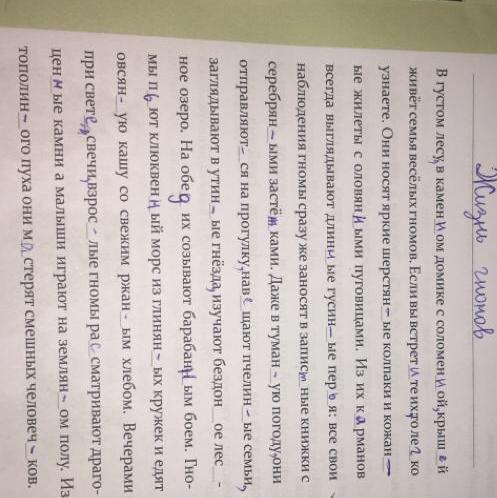 Жизнь гномов
В густом лесу, в камен н ом домике с соломен н ой, крыш е й
живёт семья весёлых гномов. Если вы встрет и те их, то ле г ко
узнаете. Они носят яркие шерстян – ые колпаки и кожан –
ые жилеты с оловян н ыми пуговицами. Из их к а рманов
всегда выглядывают длин н ые гусин – ые пер ь я: все свои
наблюдения гномы сразу же заносят в запис т ные книжки с
серебрян – ыми застё ж ками. Даже в туман – ую погоду, они
отправляют – ся на прогулку, нав е щают пчелин – ые семьи,
заглядывают в утин – ые гнёзда, изучают бездон _ ое лес _ -
ное озеро. На обе д их созывают барабан н ым боем. Гно-
мы п ь ют клюквен н ый морс из глинян – ых кружек и едят
овсян – ую кашу со свежим ржан – ым хлебом. Вечерами
при свете, свечи, взрос – лые гномы ра с сматривают драго-
цен н ые камни а малыши играют на землян – ом полу. Из
тополин – ого пуха они м а стерят смешных человеч – ков.